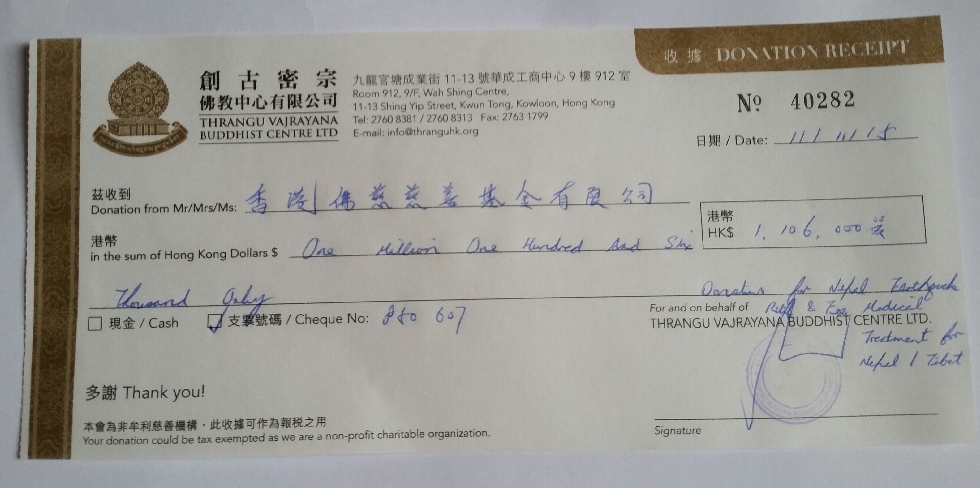 收據 DONATION RECEIPT
創古密宗
佛教中心有限公司
THRANGU VAJRAYANA
BUDDHIST CENTRE LTD
九龍官塘成業街 11-13 號華成工商中心 9 樓 912 室
Room 912, 9/F, Wah Shing Centre,
11-13 Shing Yip Street, Kwun Tong, Kowloon, Hong Kong
Tel: 2760 8381 / 2760 8313 Fax: 2763 1799
E-mail: info@thranguhk.org
Nº 40282
日期 / Date: 11/11/15
茲收到
Donation from Mr/Mrs/Ms: 香港佛慈慈善基金有限公司
港幣
in the sum of Hong Kong Dollars $ One Million One Hundred And Six
港幣
HK$ 1,106,000
Thousand Only
現金 / Cash 支票號碼 / Cheque No: 850 607
Donation for Nepal Earthquake
For and on behalf of Relief & Medical
THRANGU VAJRAYANA BUDDHIST CENTRE LTD.
Treatment for
Nepal / Tibet
多謝 Thank you!
本會為非牟利慈善機構，此收據可作為報稅之用
Your donation could be tax exempted as we are a non-profit charitable organization.
Signature